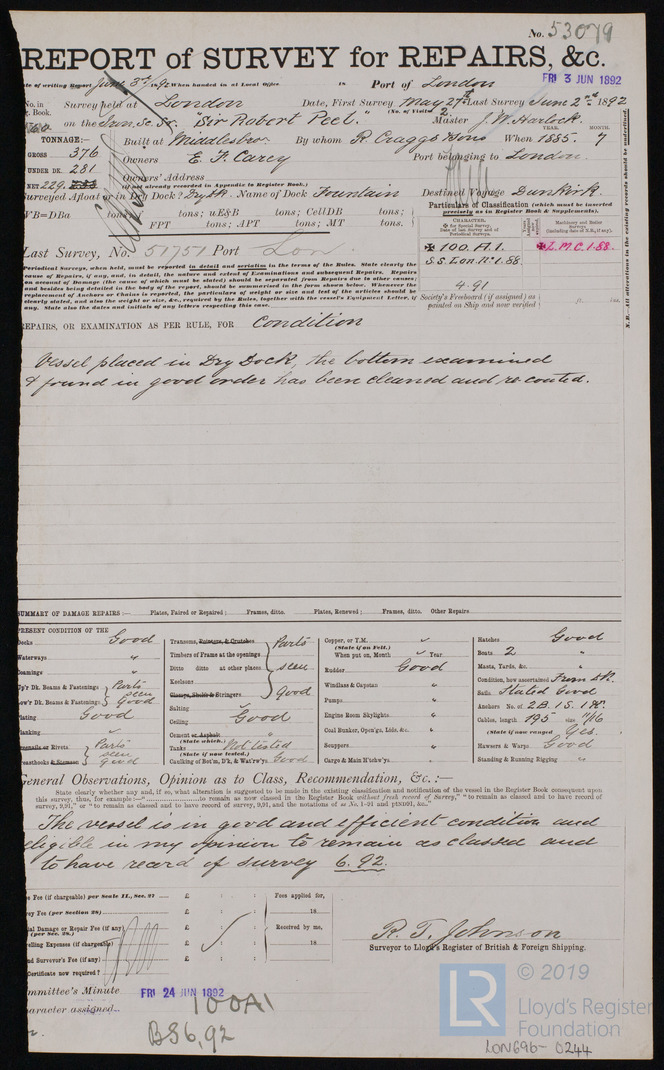 No. 53079
REPORT of SURVEY for REPAIRS, &c.
te of writing Report June 3rd 1892 When handed in at Local Office Port of London FRI 3 JUN 1892
No. in Survey held at London Date, First Survey May 27th Last Survey June 2nd 1892
g. Book. (No. of Visits 2)
on the Iron Sc. Sr. "Sir Robert Peel." Master J. W. Harlock.
TONNAGE:— Built at Middlesbro' By whom R. Craggs & Sons When 1885. YEAR. MONTH. 7
GROSS 376 Owners E. F. Carey Port belonging to London.
UNDER DK. 281 Owners' Address
NET 229. (if not already recorded in Appendix to Register Book.)
Surveyed Afloat or in Dry Dock? Dry Dk. Name of Dock Fountain Destined Voyage Dunkirk.
WB=DBa tons; uE&B tons; CellDB tons;
FPT tons; APT tons; MT tons.
Particulars of Classification (which must be inserted precisely as in Register Book & Supplements).
CHARACTER.
Machinery and Boiler Surveys (including date of N.B., if any).
✠ 100.A1. ✠L.M.C.1.88.
S.S. Lon. No 1.88.
4.91
Last Survey, No. 51751 Port Lon.
Periodical Surveys, when held, must be reported in detail and seriatim in the terms of the Rules. State clearly the
cause of Repairs, if any, and, in detail, the nature and extent of Examinations and subsequent Repairs. Repairs
on account of Damage (the cause of which must be stated) should be separated from Repairs due to other causes;
and besides being detailed in the body of the report, should be summarised in the form shown below. Whenever the
replacement of Anchors or Chains is reported, the particulars of weight or size and test of the articles should be
clearly stated, and also the weight or size, &c., required by the Rules, together with the vessel's Equipment Letter, if
any. State also the dates and initials of any letters respecting this case.
Society's Freeboard (if assigned) as printed on Ship and now verified } ft. ins.
N.B.—All alterations in the existing records should be underlined.
EPAIRS, OR EXAMINATION AS PER RULE, FOR Condition
Vessel placed in Dry Dock, the bottom examined
& found in good order has been cleaned and re coated.
SUMMARY OF DAMAGE REPAIRS:— Plates, Faired or Repaired; Frames, ditto. Plates, Renewed; Frames, ditto. Other Repairs
PRESENT CONDITION OF THE
Decks Good
Waterways "
Coamings "
Up'r Dk. Beams & Fastenings } Parts seen
Low'r Dk. Beams & Fastenings } Good
Plating Good
Planking
Treenails or Rivets } Parts seen
Breasthooks & Stemson } good
Transoms, Pointers, & Crutches
Timbers of Frame at the openings
Ditto ditto at other places
Keelsons
Clamps, Shelfs & Stringers
} Parts seen good
Salting
Ceiling Good
Cement or Asphalt (State which.) "
Tanks (State if now tested.) Not tested
Caulking of Bot'm, D'k, & Wat'rw'ys. Good
Copper, or Y.M. (State if on Felt.)
When put on, Month Year
Rudder Good
Windlass & Capstan "
Pumps "
Engine Room Skylights "
Coal Bunker, Open'gs, Lids, &c. "
Scuppers "
Cargo & Main H'tchw'ys "
Hatches Good
Boats 2 "
Masts, Yards, &c. "
Condition, how ascertained From Dk.
Sails Stated Good
Anchors No. of 2B. 1S. 1K.
Cables, length 195 size 1 1/16
(State if now ranged) Yes.
Hawsers & Warps Good
Standing & Running Rigging "
General Observations, Opinion as to Class, Recommendation, &c.:—
State clearly whether any and, if so, what alteration is suggested to be made in the existing classification and notification of the vessel in the Register Book consequent upon
this survey, thus, for example:—" to remain as now classed in the Register Book without fresh record of Survey," "to remain as classed and to have record of survey,
9,91," or "to remain as classed and to have record of survey, 9,91, and the notations of ss No. 1-91 and ptND91, &c."
The vessel is in good and efficient condition and
eligible in my opinion to remain as classed and
to have record of survey 6.92.
e Fee (if chargeable) per Scale II., Sec. 27 £ : :
ey Fee (per Section 28) £ : :
ial Damage or Repair Fee (if any) (per Sec. 28.) £ : :
velling Expenses (if chargeable) £ : :
nd Surveyor's Fee (if any) £ : :
Certificate now required?
Fees applied for,
18
Received by me,
18
R. T. Johnson
Surveyor to Lloyd's Register of British & Foreign Shipping.
ommittee's Minute FRI 24 JUN 1892
aracter assigned 100A1
BS6,92
LR © 2019
Lloyd's Register
Foundation
LON696-0244